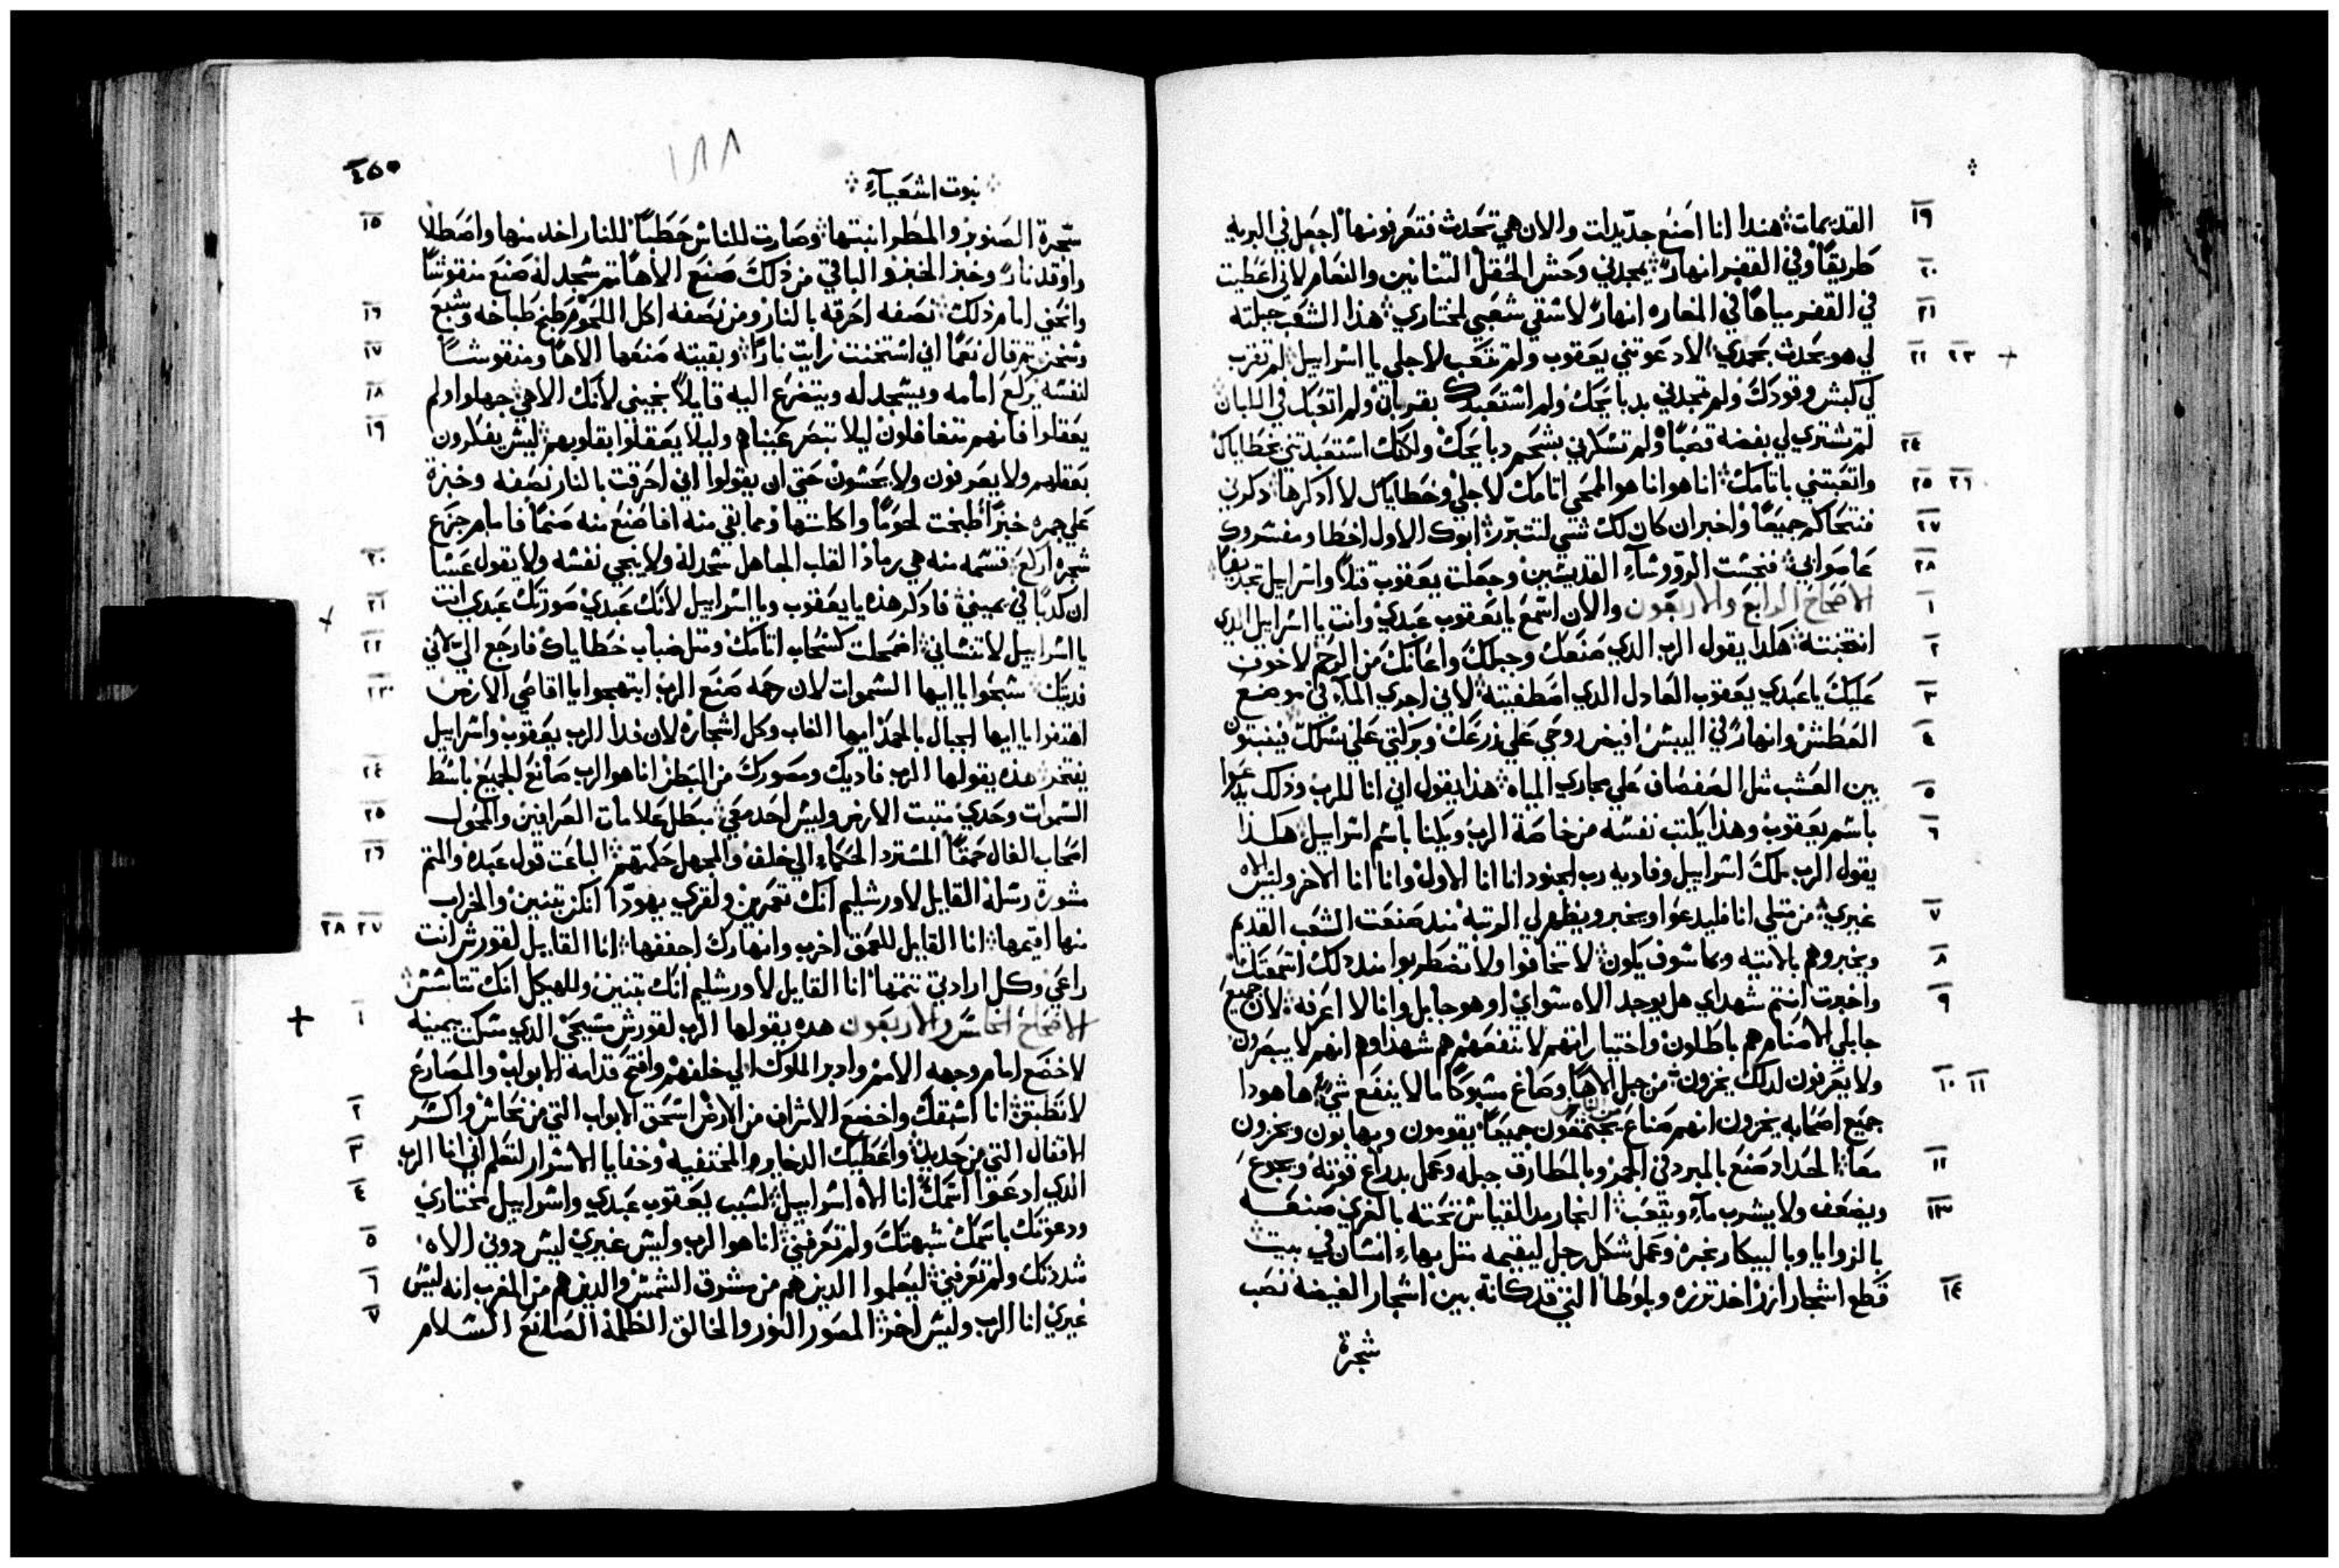 ١٩ القديمات هندا انا اصنع جديدات والان هي تحدث فتعرفونها اجعل في البريه
٢٠ طريقاً وفي القفر انهارً يمجدني وحش الحقل التنانين والنعام لاني اعطيت
٢١ في القفر مياهاً في المغاره انهارً لاسقي شعبي لمختاري هذا الشعب جبلته
٢٢ ٢٣ لي هو يحدث بمجدي الا دعوتني يعقوب ولم تتعب لاجلي يا اسراييل لم تقرب
لي كبش وقودك ولم تمجدني بدبايحك ولم استعبدك بقربان ولم اتعبك في اللبان
٢٤ لم تشتري لي بفضه قصباً ولم تسكرني بشحم دبايحك ولكنك استعبدتني بخطاياك
٢٥ ٢٦ واتعبتني باتامك انا هو انا هو الممحي اتامك لاجلي وخطاياك لا ادكرها دكرني
٢٧ فنتحاكم جميعاً واخبر ان كان لك شي لتتبرر ابوك الاول اخطا ومفسروك
٢٨ عاصواني فنجست الروؤساء القديسين وجعلت يعقوب قتلاً واسراييل تجديفاً
١ الاصحاح الرابع والاربعون والان اسمع يا يعقوب عبدي وانت يا اسراييل الدي
٢ انتخبته هكدا يقول الرب الدي صنعك وجبلك واعانك من الرحم لا خوف
٣ عليك يا عبدي يعقوب العادل الدي اصطفيته لاني اجري الماء في موضع
٤ العطش وانهارً في اليبس افيض روحي علي زرعك وبركتي علي نسلك فينبتون
٥ بين العشب مثل الصفصاف علي مجاري المياه هذا يقول اني انا للرب وذلك يدعوا
٦ باسم يعقوب وهذا يكتب نفسه من خاصة الرب ويكنا باسم اسراييل هكذا
يقول الرب ملك اسراييل وفاديه رب الجنود انا انا الاول وانا انا الاخر وليس الاه
٧ غيري من مثلي انا فليدعوا ويخبر ويظهر لي الرتبه مند صنعت الشعب القديم
٨ ويخبروهم بالاتيه وبما سوف يكون لا تخافوا ولا تضطربوا مند دلك اسمعتك
٩ واخبرت انتم شهداي هل يوجد الاه سواي او هو جابل وانا لا اعرفه لان جميع
جابلي الاصنام هم باطلون واختياراتهم لا تنفعهم هم شهداوهم انهم لا يبصرون
١٠ ١١ ولا يعرفون لدلك يخزون من جبل الاهاً وصاغ مسبوكاً ما لا ينفع شي ها هودا
جميع اصحابه يخزون انهم صناع يجتمعون جميعاً يقومون ويهابون ويخزون
١٢ معاً الحداد صنع بالمبرد في الجمر وبالمطارق جبله وعمل بدراع قوته ويجوع
١٣ ويضعف ولا يشرب ماء ويتعب النجار مد القياس نحته بالغري صنعه
بالزوايا وبالبيكار نحره وعمل شكل رجل ليقيمه مثل بهاء انسان في بيت
١٤ قطع اشجار ارز اخد ترزه وبلوطا التي قد كانة بين اشجار الغيضه نصب
شجرة
٤٥٠
١٨٨
نبوت اشعياء
١٥ شجرة الصنوبر والمطر انبتها وصارت للناس حطباً للنار اخد منها واصطلا
واوقد نارً وخبز الخبز والباقي من ذلك صنع الاهاً ثم سجد له صنع منقوشاً
١٦ وانحني امام ذلك نصفه احرقه بالنار ومن نصفه اكل اللحوم طبخ طباخه وشبع
١٧ وسخن ثم قال نعماً اني استخنت رايت ناراً وبقيته صنعها الاهاً ومنقوشاً
١٨ لنفسه يركع امامه ويسجد له ويتضرع اليه قايلاً نجيني لانك الاهي جهلوا ولم
١٩ يعقلوا فانهم متغافلون ليلا تبصر عيناهم وليلا يعقلوا بقلوبهم ليس يفكرون
بعقلهم ولا يعرفون ولا يحسون حتي ان يقولوا اني احرقت بالنار نصفه وخبزة
علي جمره خبزاً طبخت لحوماً واكلتها ومما بقي منه افاصنع منه صنماً فامام جزع
٢٠ شجره اركع قسمه منه هي رماد القلب الجاهل سجد له ولا ينجي نفسه ولا يقول عسا
٢١ ان كدباً في يميني فادكر هذه يا يعقوب ويا اسراييل لانك عبدي صورتك عبدي انت
٢٢ يا اسراييل لا تنساني اضمحلت كسحاب اتامك ومثل ضباب خطاياك فارجع الي لاني
٢٣ فديتك سبحوا يا ايها السموات لان رحمه صنع الرب ابتهجوا يا اقاصي الارض
اهتفوا يا ايها الجبال بالحمد ايها الغاب وكل اشجاره لان فدا الرب يعقوب واسراييل
٢٤ يفتخر هذه يقولها الرب فاديك ومصورك من البطن انا هو الرب صانع الجميع باسط
٢٥ السموات وحدي مثبت الارض وليس احد معي مبطل علامات العرافين والمحول
٢٦ اصحاب الفال حمقاً المسترد الحكماء الي خلف والمجهل حكمتهم الباعت قول عبده والمتم
مشورة رسله القايل لاورشليم انك تعمرين ولقري يهودا انكن تبنين والخراب
٢٧ ٢٨ منها اقيمها انا القايل للعمق اخرب وانهارك اجففها انا القايل لقورش انت
راعي وكل ارادتي تتمها انا القايل لاورشليم انك تبنين وللهيكل انك تتاسس
١ الاصحاح الخامس والاربعون هده يقولها الرب لقورش مسيحي الدي مسكت بيمينه
لاخضع امام وجهه الامم وادبر الملوك الي خلفهم وافتح قدامه الابواب والمصارع
٢ لا تطبق انا اسبقك واخضع الاشراف من الارض اسحق الابواب التي من نحاس واكسر
٣ الاقفال التي من حديد واعطيك الدخاير والمختفيه وخفايا الاسرار لتعلم اني انا الرب
٤ الدي ادعوا اسمك انا الاه اسراييل لسبب يعقوب عبدي واسراييل مختاري
٥ ودعوتك باسمك شبهتك ولم تعرفني انا هو الرب وليس غيري ليس دوني الاه
٦ شددتك ولم تعرفني ليعلموا الدين هم من مشرق الشمس والدين هم من المغرب انه ليس
٧ غيري انا الرب وليس اخر المصور النور والخالق الظلمة الصانع السلام